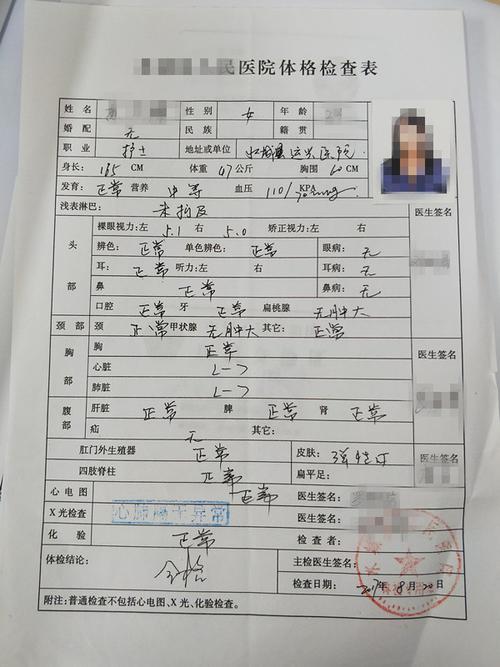 民医院体格检查表
姓名 性别 女 年龄
婚配 无 民族 籍贯
职业 护士 地址或单位 医院
身长: 165 CM 体重 47 公斤 胸围 60 CM
发育: 正常 营养 中等 血压 110/ KPA
浅表淋巴: 未扪及 医生签名
头部 裸眼视力:左 5.1 右 5.0 矫正视力:左 右
辨色: 正常 单色辨色: 正常 眼病: 无
耳: 正常 听力:左 右 耳病: 无
鼻 正常 鼻病: 无
口腔 正常 牙 正常 扁桃腺 无肿大
颈部 颈: 正常 甲状腺 无肿大 其它: 正常
胸部 胸 正常 医生签名
心脏 (一)
肺脏 (一)
腹部 肝脏 正常 脾 正常 肾 正常 医生签名
疝 无 其它:
肛门外生殖器 正常 皮肤: 医生签名
四肢脊柱 正常 扁平足:
心电图 正常 医生签名:
X光检查 心肺隔干异常 医生签名:
化验 正常 检查者:
体检结论: 合格 主检医生签名:
检查日期: 2017年8月20日
附注:普通检查不包括心电图、X光、化验检查。